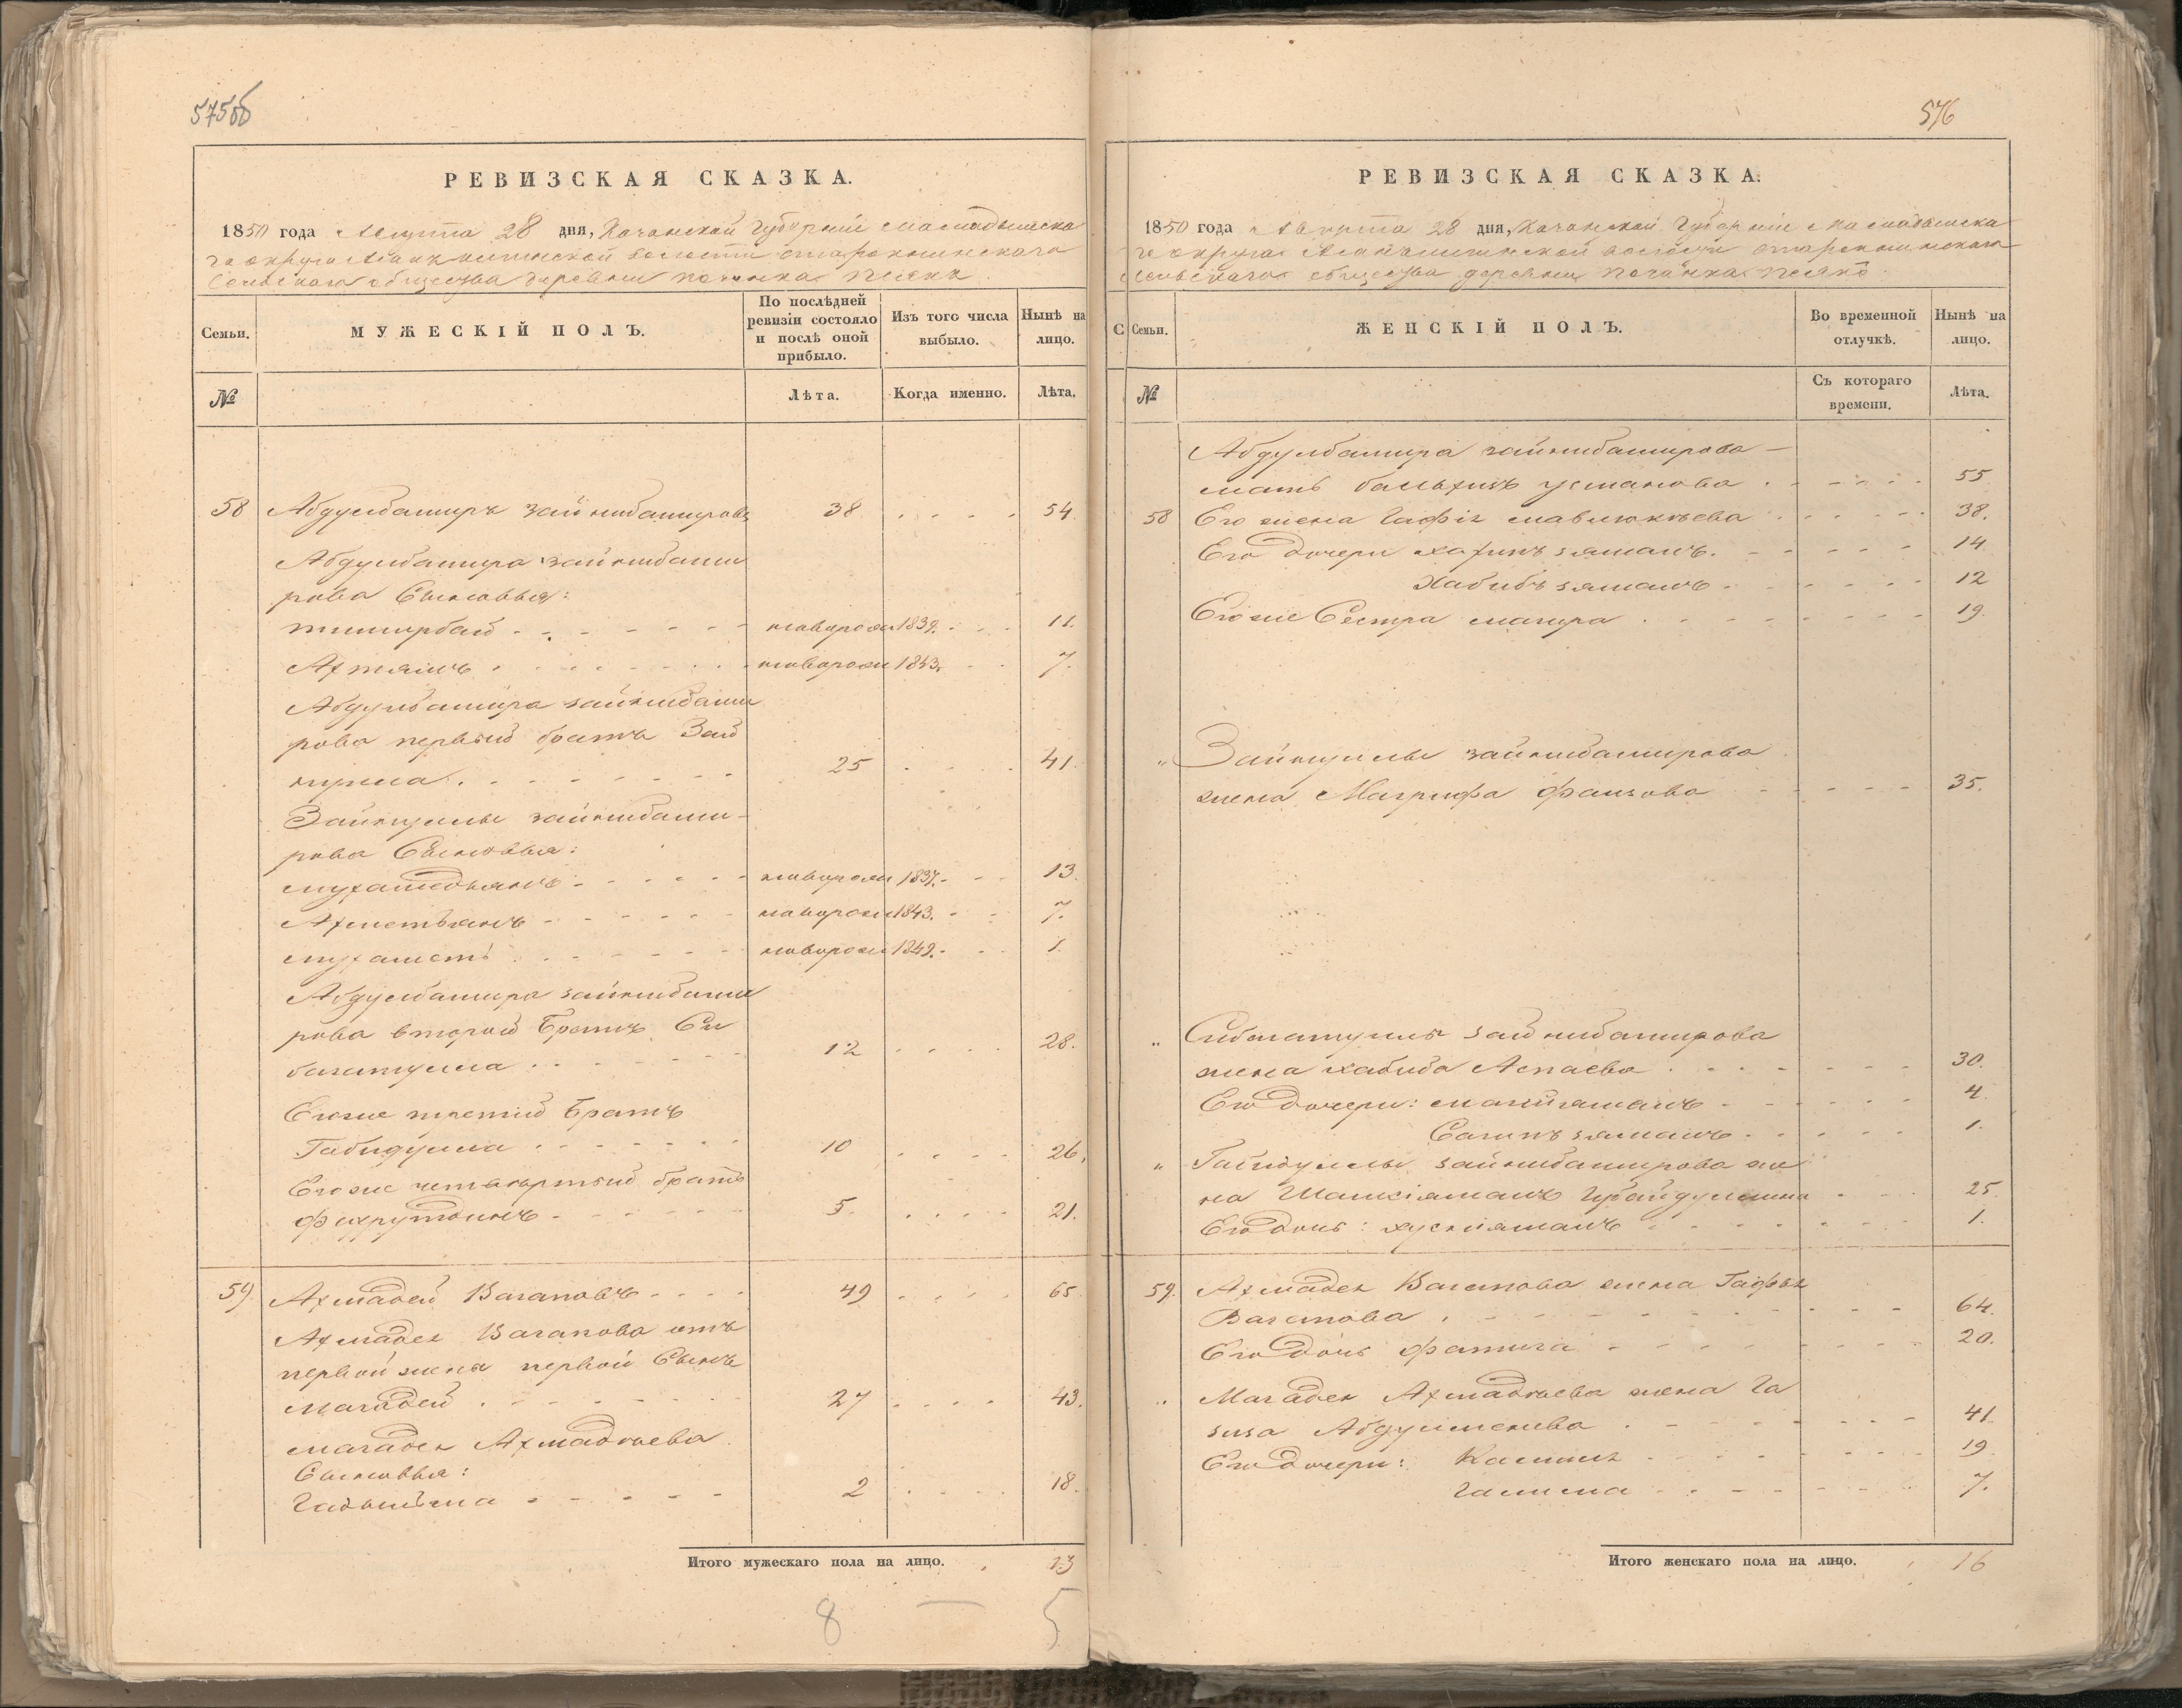 575об
РЕВИЗСКАЯ СКАЗКА.
1850 года Августа 28 дня, Казанской Губерніи Мамадышска
го округа волости Старокшинскаго
Сельскаго общества деревни починка
Семьи.
МУЖЕСКІЙ ПОЛЪ.
По послѣдней ревизіи состояло и послѣ оной прибыло.
Изъ того числа выбыло.
Нынѣ на лицо.
№
Лѣта.
Когда именно.
Лѣта.
58 Абдулбаширъ Зайнибашировъ 38 . . . . 54
Абдулбашира Зайнибаши
рова Сыновья:
тимирбай - - - новорожд 1839. - . . 11.
Ахтямъ . . . . новорожд 1843. . . 7.
Абдулбашира Зайнибаши
рова первый братъ Зай
нулла . - - - 25 . . . 41.
Зайнуллы зайнибаши-
рова Сыновья:
мухаметьянъ - - - новорожд 1837. - - - 13.
Ахметьянъ - - - новорожд 1843. - - 7.
мухаметъ . - - - новорожд 1849. - . . 1.
Абдулбашира зайнибаши
рова второй Братъ Си
багатулла . . - - - 12 . . . . 28.
Егоже третий Братъ
Габидулла . . . - - - 10 . . . . 26.
Егоже четвертый братъ
фахрутдинъ - - - 5. . . . . 21.
59. Ахмадей Вагаповъ - - - 49 . . . . 65.
Ахмадея Вагапова отъ
первой жены первой Сынъ
магадей . - - - 27 . . . . 43.
магадея Ахмадѣева
Сыновья:
Гадыльша - - - 2 . . . . 18.
Итого мужескаго пола на лицо. . 13
8 — 5
576
РЕВИЗСКАЯ СКАЗКА.
1850 года Августа 28 дня, Казанской Губерніи Мамадышска
го округа волости Старокшинскаго
Сельскаго общества деревни Починка
С Семьи.
ЖЕНСКІЙ ПОЛЪ.
Во временной отлучкѣ.
Нынѣ на лицо.
№
Съ котораго времени.
Лѣта.
Абдулбашира зайнибаширова —
мать усманова . - - - 55
58 Его жена Гафія мавлюкѣева . . . . 38.
Его дочери зямалъ. - - - 14
Хабибъ зямалъ - . - - - 12
Егоже Сестра магира . . . - - - 19.
„ Зайнуллы зайнибаширова
жена Магрифа фаизова - - - 35.
„ Сибагатуллы зайнибаширова
жена хабиба Аспаева . . - - - 30.
Его дочери: - - - 4.
Сагипъ зямалъ . . . . 1.
„ Габидуллы зайнибаширова же
на Шамсіямалъ Губайдуллина . - . . 25.
Его дочь: хуснiямалъ - . - - - 1.
59. Ахмадея Вагапова жена Гафія
Вагапова . - - - 64.
Его дочь фатига - - - 20.
„ Магадея Ахмадѣева жена Га
зиза . - - - 41.
Его дочери: Камиля . . - - - 19.
Галима - . - - - 7.
Итого женскаго пола на лицо. . 16